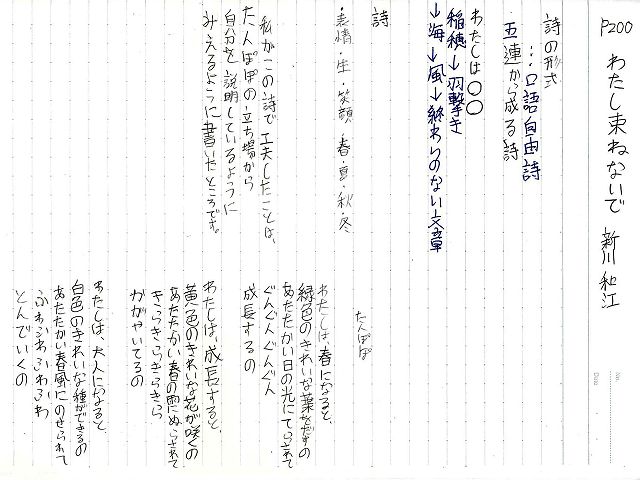 P200 わたし束ねないで 新川和江
詩の形式
…口語自由詩
五連から成る詩
わたしは〇〇
稲穂→羽撃き
→海→風→終わりのない文章
詩
・表情・生・笑顔・春・夏・秋・冬
私がこの詩で工夫したことは、
たんぽぽの立ち場から
自分を説明しているように
みえるように書いたところです。
たんぽぽ
わたしは、春になると、
緑色のきれいな葉をだすの
あたたかい日の光にてらされて
ぐんぐんぐんぐん
成長するの
わたしは、成長すると、
黄色のきれいな花が咲くの
あたたかい春の雨にぬらされて
きらきらきらきら
かがやいてるの
わたしは、大人になると
白色のきれいな種ができるの
あたたかい春風にのせられて
ふわふわふわふわ
とんでいくの
No.
Date